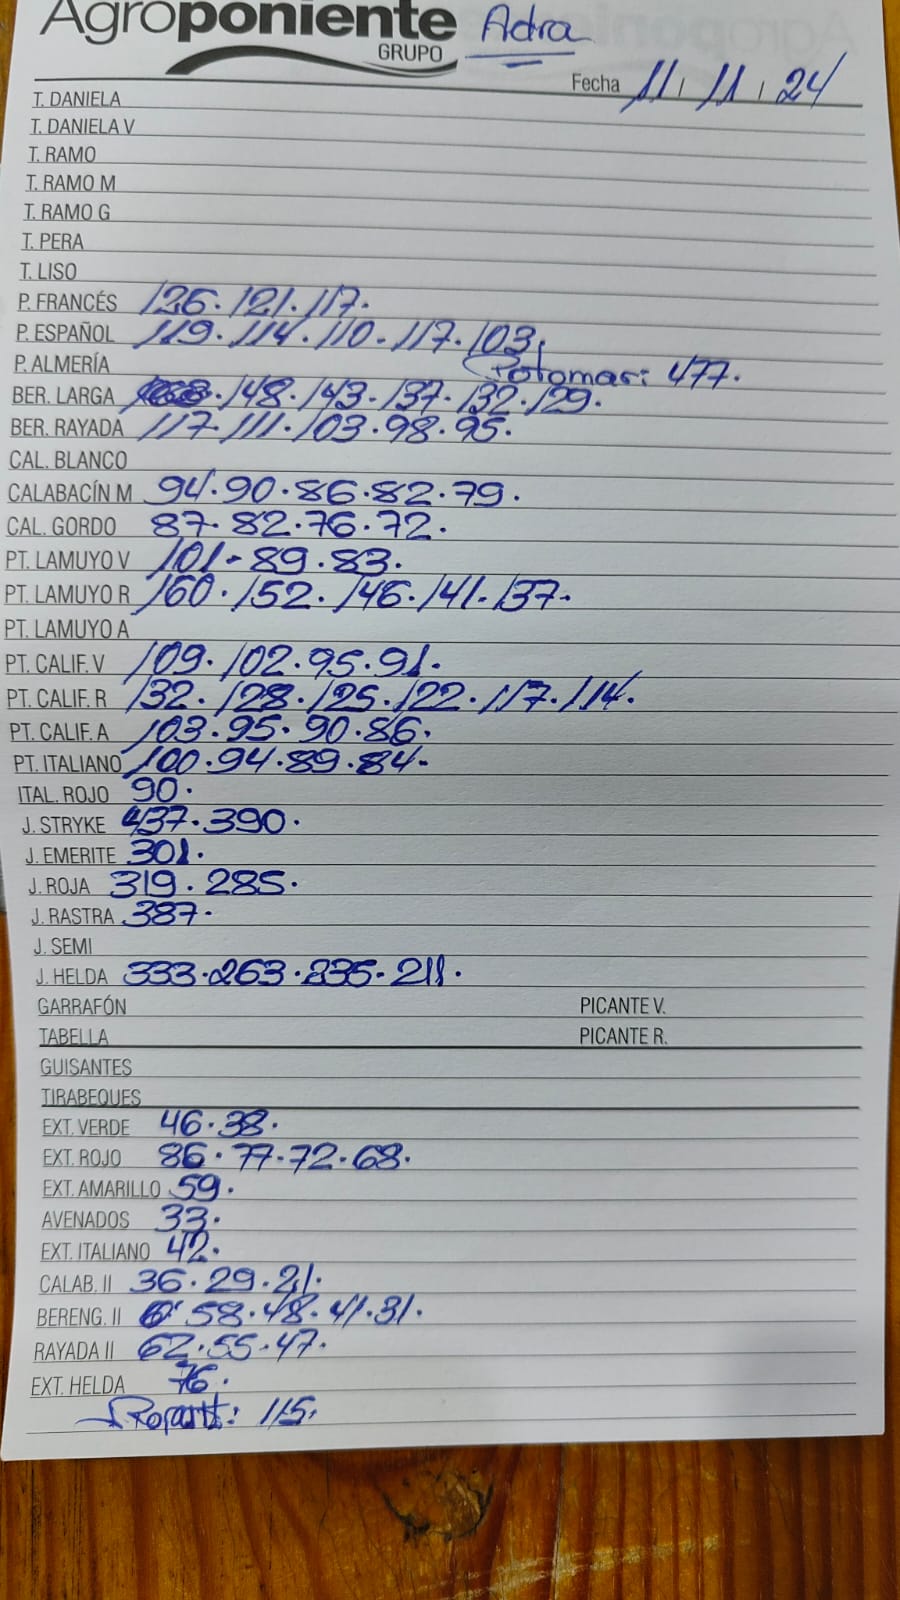 Agroponiente Adra
GRUPO
Fecha 11/11/24
T. DANIELA
T. DANIELA V
T. RAMO
T. RAMO M
T. RAMO G
T. PERA
T. LISO
P. FRANCÉS 126. 121. 117.
P. ESPAÑOL 119. 114. 110. 117. 103.
P. ALMERÍA Potomar: 477.
BER. LARGA . 148. 143. 137. 132. 129.
BER. RAYADA 117. 111. 103. 98. 95.
CAL. BLANCO
CALABACÍN M 94. 90. 86. 82. 79.
CAL. GORDO 87. 82. 76. 72.
PT. LAMUYO V 101. 89. 83.
PT. LAMUYO R 160. 152. 146. 141. 137.
PT. LAMUYO A
PT. CALIF. V 109. 102. 95. 91.
PT. CALIF. R 132. 128. 125. 122. 117. 114.
PT. CALIF. A 103. 95. 90. 86.
PT. ITALIANO 100. 94. 89. 84.
ITAL. ROJO 90.
J. STRYKE 437. 390.
J. EMERITE 301.
J. ROJA 319. 285.
J. RASTRA 387.
J. SEMI
J. HELDA 333. 263. 235. 211.
GARRAFÓN PICANTE V.
TABELLA PICANTE R.
GUISANTES
TIRABEQUES
EXT. VERDE 46. 38.
EXT. ROJO 86. 77. 72. 68.
EXT. AMARILLO 59.
AVENADOS 33.
EXT. ITALIANO 42.
CALAB. II 36. 29. 21.
BERENG. II 58. 48. 41. 31.
RAYADA II 62. 55. 47.
EXT. HELDA 76.
115.